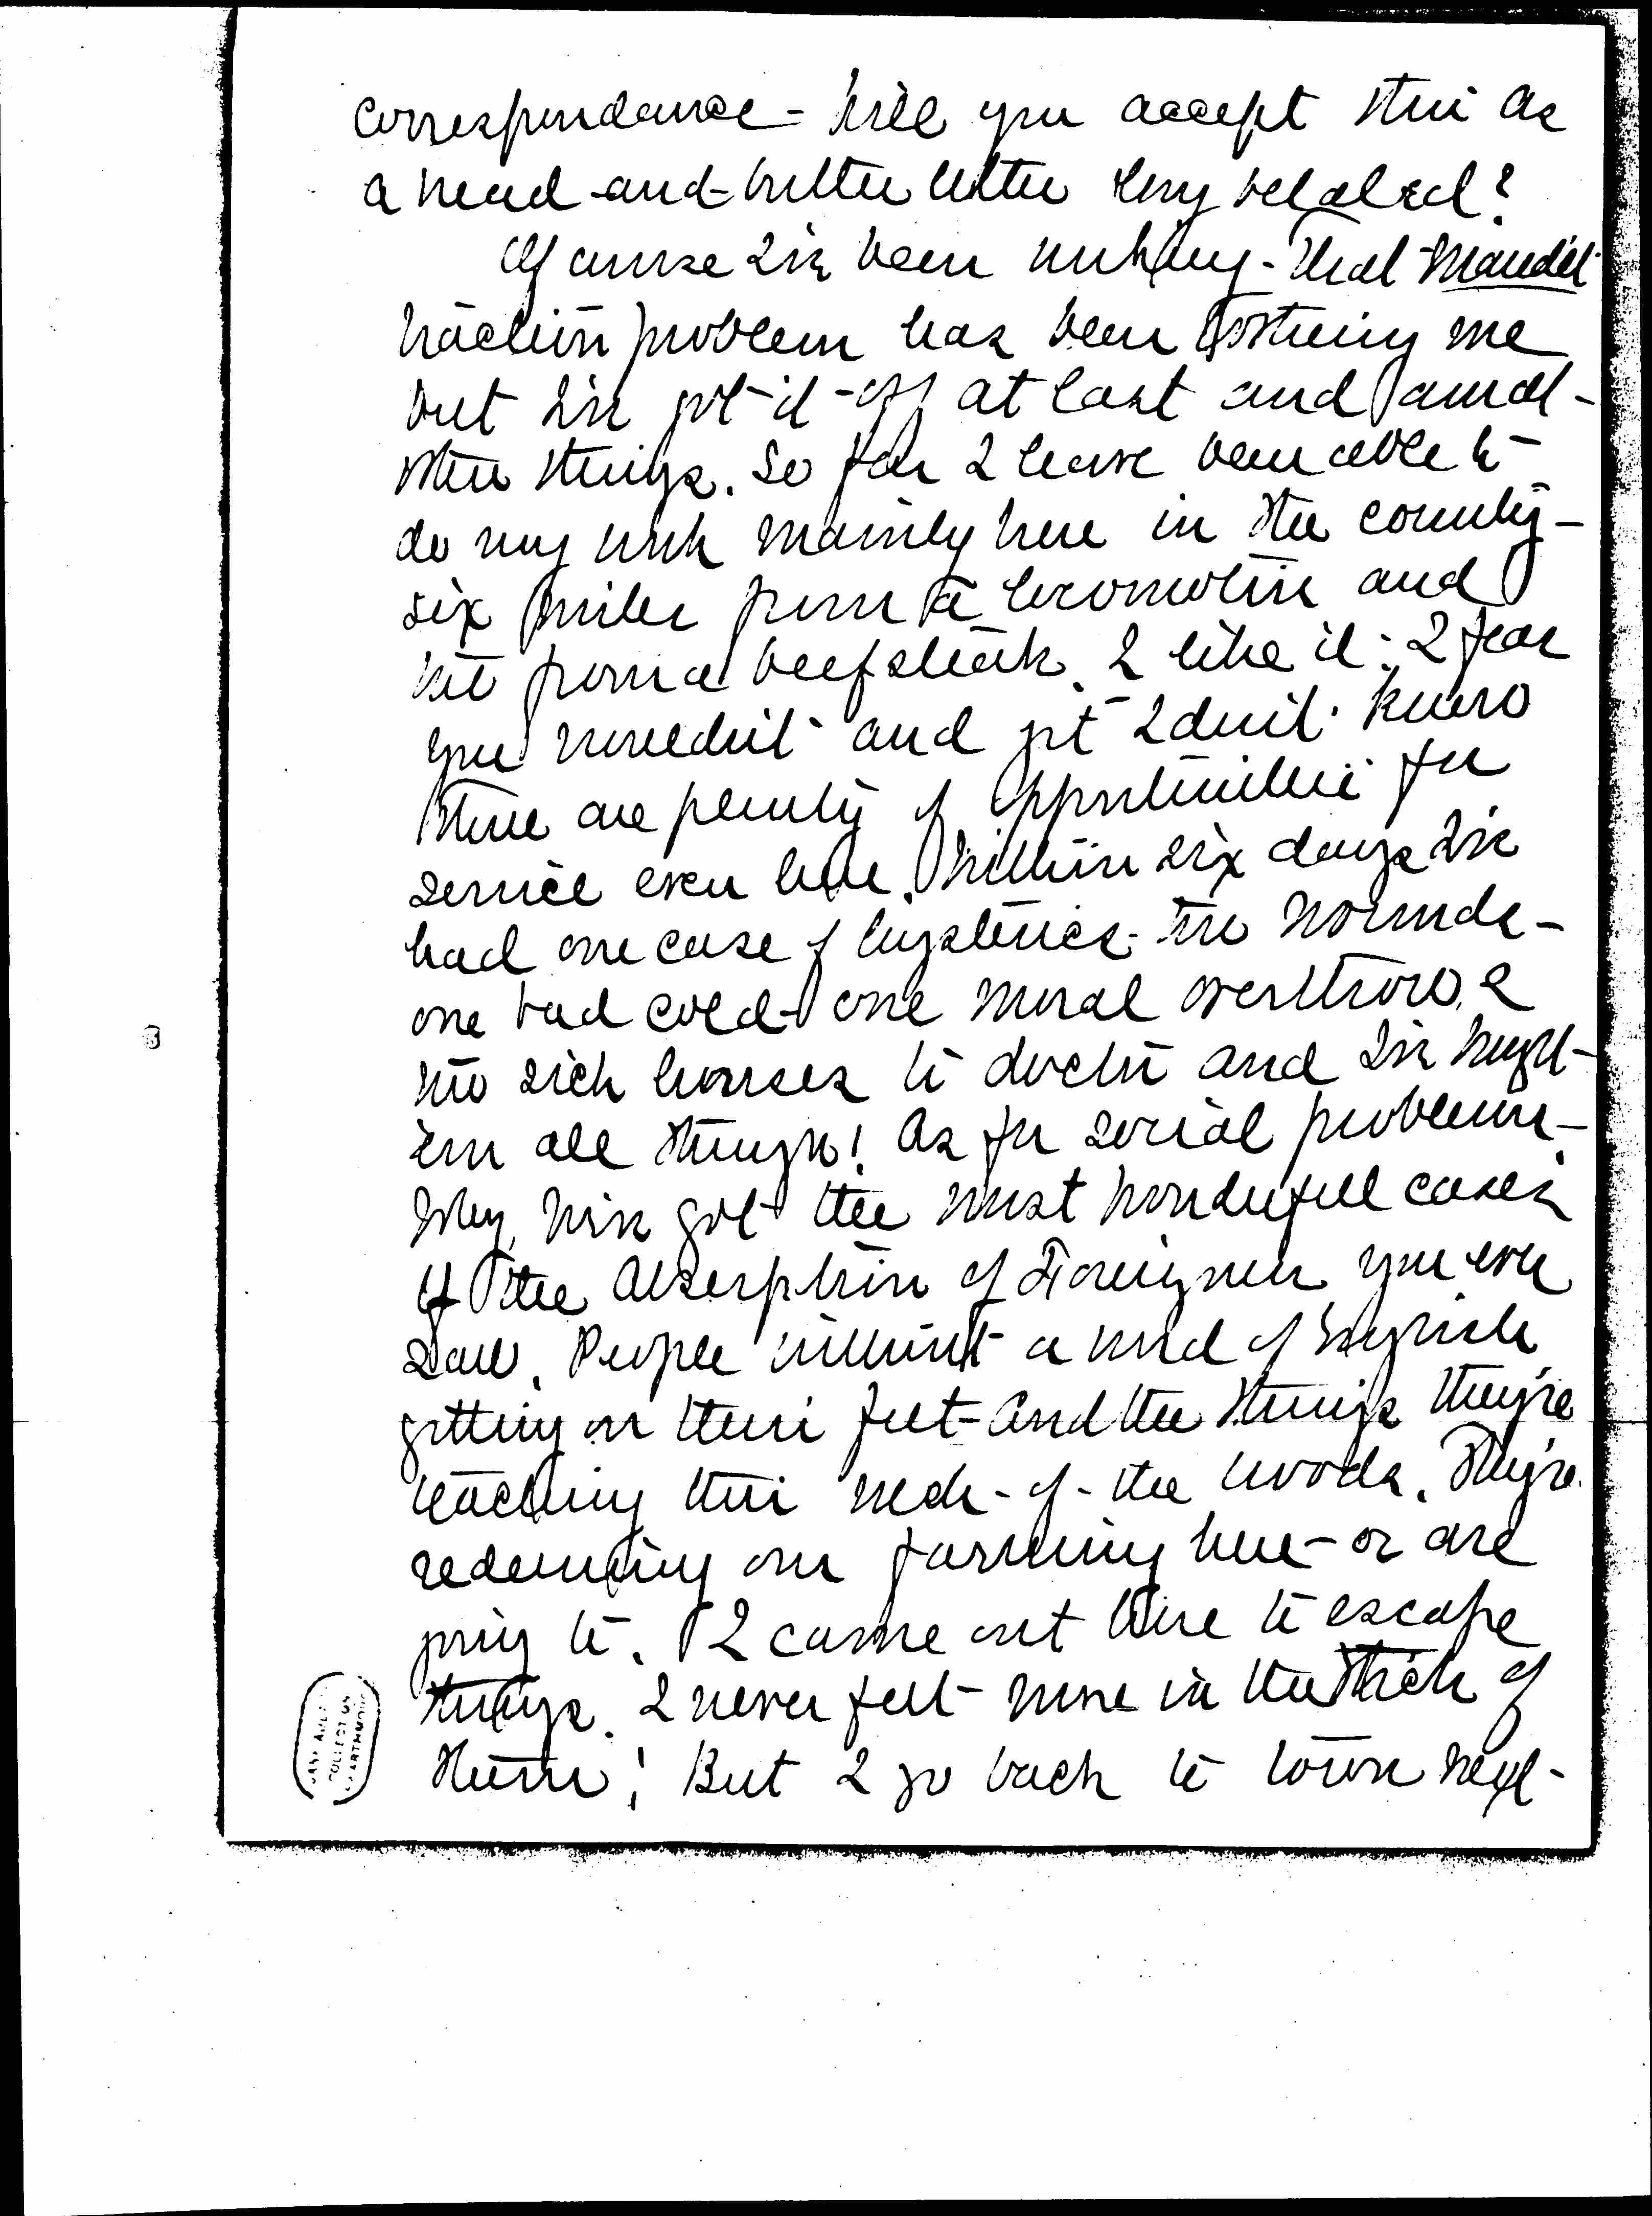 correspondance - Will you accept this as
a bread-and-butter letter long belated?
Of course I've been working - That
traction problem has been bothering me
but I've got it off at last and
other things. So far I have been able to
do my work mainly here in the country -
six miles from a locomotive and
from a beefsteak. I like it: I fear
you wouldn't and yet I don't know
there are plenty of opportunities for
service even here. Within six days I've
had one case of hysterics - two wounds -
one bad cold - one moral overthrow &
two sick horses to doctor and I've brought
'em all through! As for social problems -
Why, we've got the most wonderfull cases
of the Absorption of Foreigners you ever
saw. People without a word of English
getting on their feet - And the things they're
teaching this neck-of-the woods. They're
redeeming our farming here - or are
going to. I came out here to escape
things. I never felt more in the thick of
them! But I go back to town next